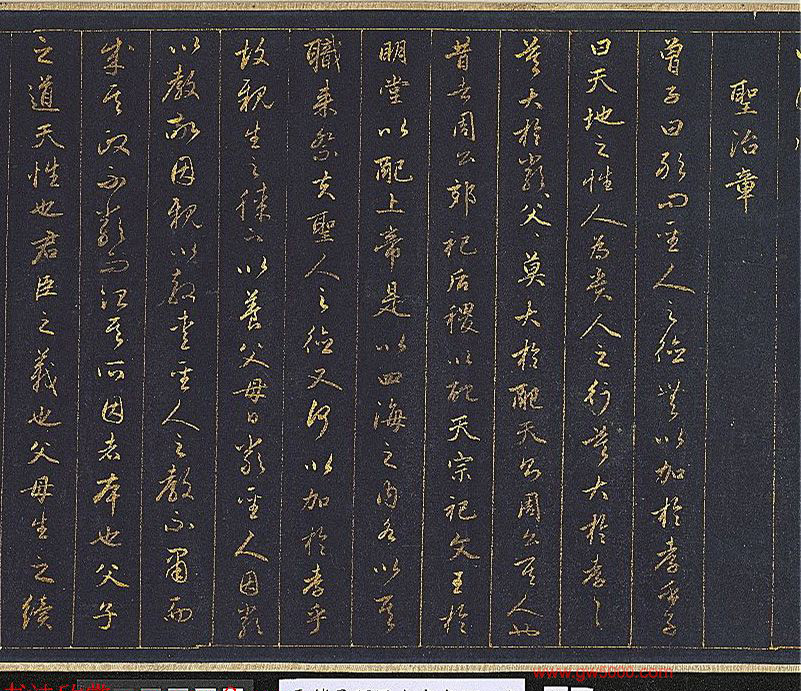 聖治章
曾子曰敢問聖人之德無以加於孝乎子
曰天地之性人為貴人之行莫大於孝〻
莫大於嚴父〻莫大於配天則周公其人也
昔者周公郊祀后稷以配天宗祀文王於
明堂以配上帝是以四海之內各以其
職來祭夫聖人之德又何以加於孝乎
故親生之膝下以養父母日嚴聖人因嚴
以教敬因親以教愛聖人之教不肅而
成其政不嚴而治其所因者本也父子
之道天性也君臣之義也父母生之續
www.gw5000.com